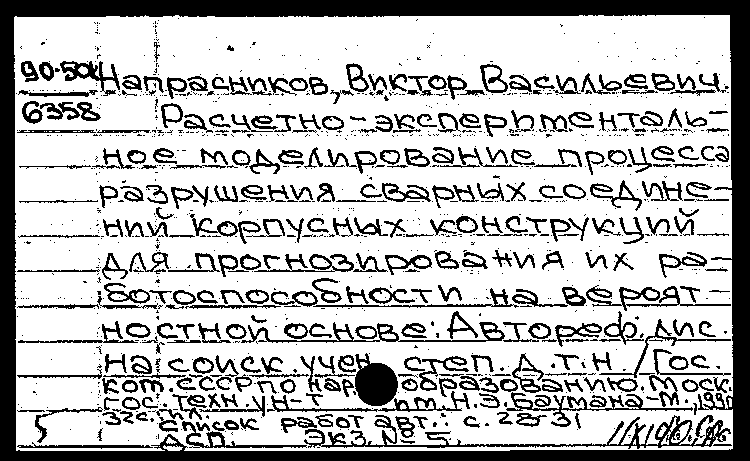 90-50к Напрасников, Виктор Васильевич.
6358 Расчетно-эксперименталь-
ное моделирование процесса
разрушения сварных соедине-
ний корпусных конструкций
для прогнозирования их ра-
ботоспособности на вероят-
ностной основе: Автореф. дис.
на соиск. учен. степ. д.т.н / Гос.
ком. СССР по нар образованию. Моск.
гос. техн. ун-т им. Н.Э. Баумана-М., 1990
32с. ил.
5 Список работ авт.: с. 28-31
ДСП. Экз. № 5.